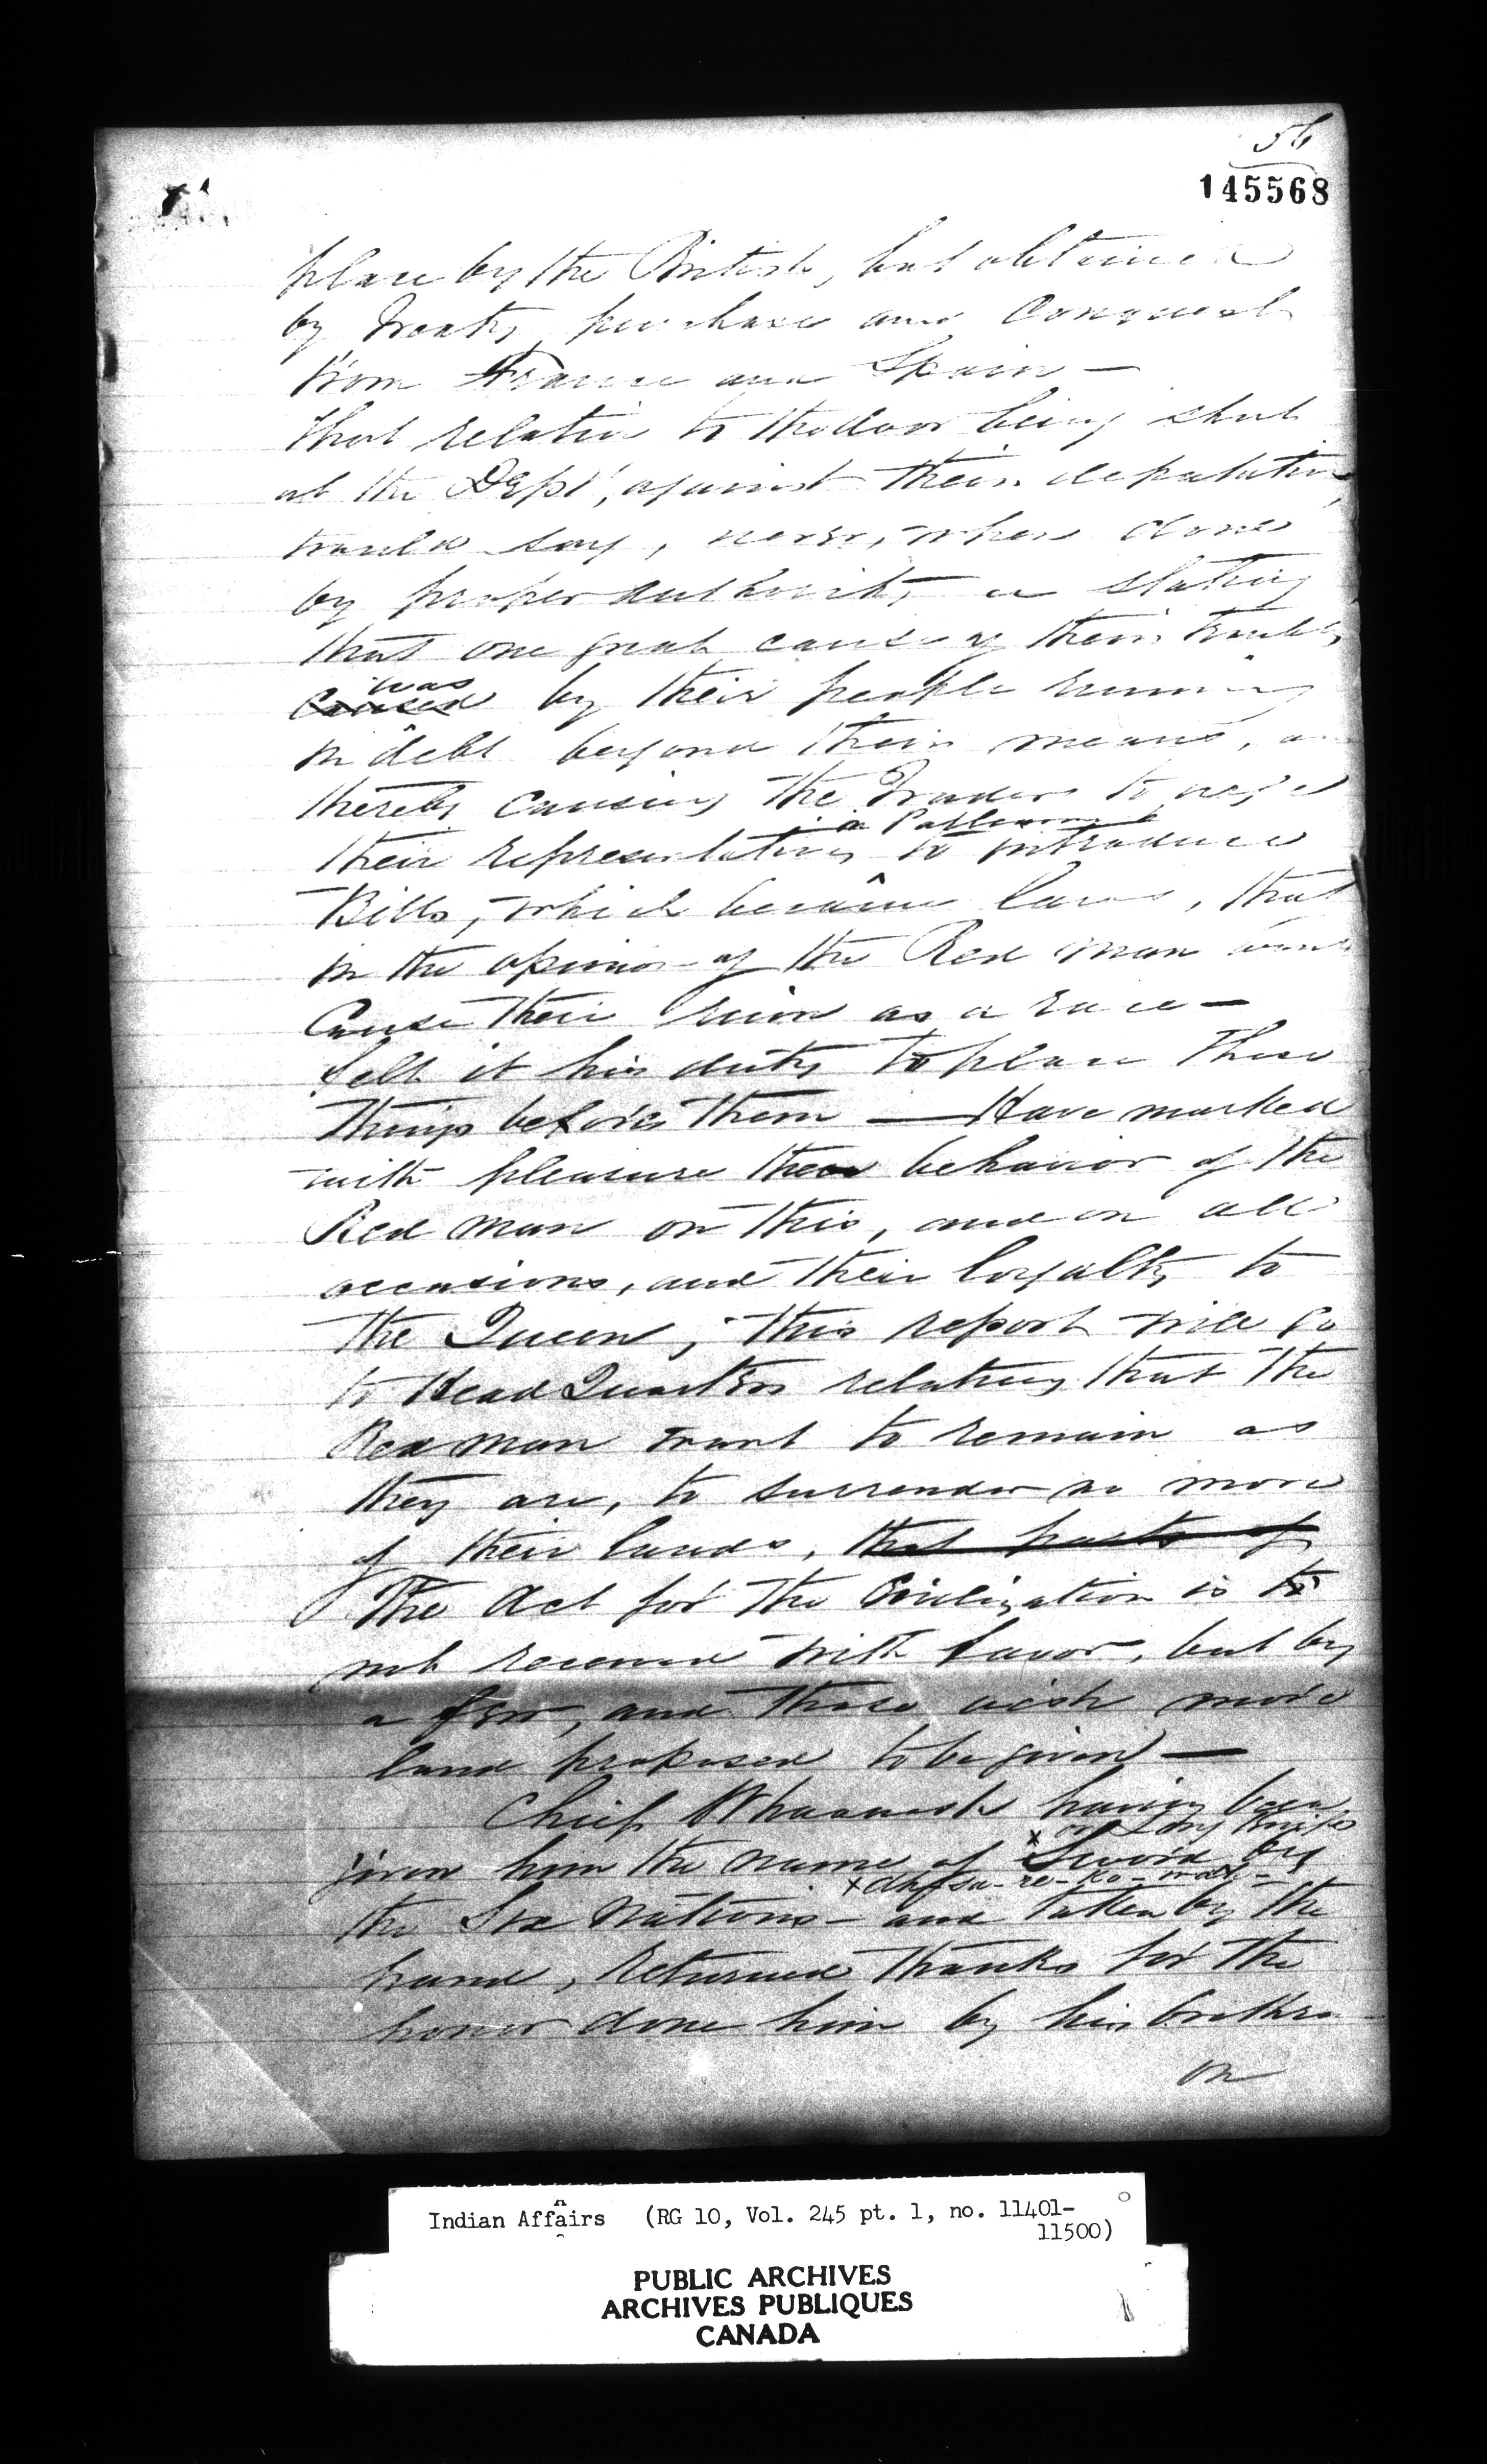 56
145568
place by the British, but obtained
by Treaty, purchase and Conquest
from France and Spain —
That relative to the door being shut
at the Dept, against their deputation,
would say, never, when done
by proper authority, in stating
that one great cause of their troubles
was
Caused by their people running
in debt beyond their means, an
thereby causing the Traders to urge
in Parliament
their representatives to introduce
Bills, which became laws, that
in the opinion of the Red man would
Cause their ruin as a race —
felt it his duty to place these
things before them — Have marked
with pleasure the behavior of the
Red man on this, and on all
occasions, and their loyalty to
the Queen, this report will go
to Head Quarters relating that the
Red man want to remain as
they are, to surrender no more
of their lands, that parts of
The Act for the Civilization is to
not received with favor, but by
a few, and those wish more
land proposed to be given —
Chief having been
x or Long Knife
given him the name of Sword by
x
the Six Nations — and taken by the
hand, returned thanks for the
honor done him by his brethren
on
Indian Affairs (RG 10, Vol. 245 pt. 1, no. 11401-
11500)
PUBLIC ARCHIVES
ARCHIVES PUBLIQUES
CANADA